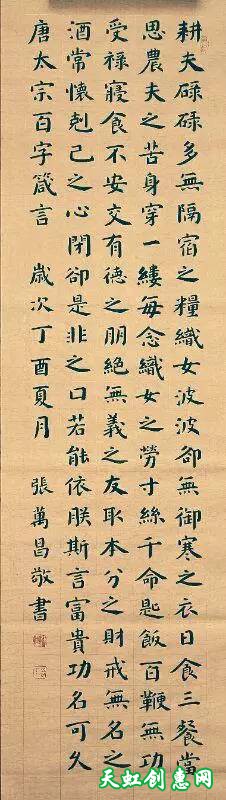 耕夫碌碌多無隔宿之糧織女波波卻無御寒之衣日食三餐當
思農夫之苦身穿一縷每念織女之勞寸絲千命匙飯百鞭無功
受祿寢食不安交有德之朋絕無義之友取本分之財戒無名之
酒常懷剋己之心閉卻是非之口若能依朕斯言富貴功名可久
唐太宗百字箴言 歲次丁酉夏月 張萬昌敬書
天虹创惠网